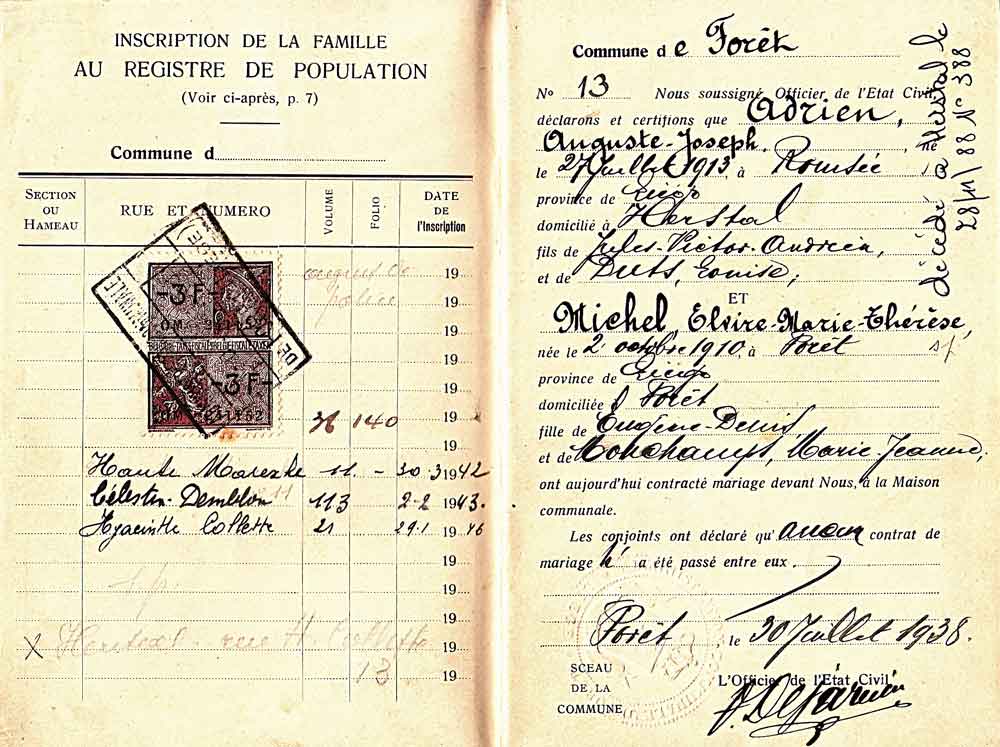 INSCRIPTION DE LA FAMILLE
AU REGISTRE DE POPULATION
(Voir ci-après, p. 7)
Commune d
SECTION OU HAMEAU
RUE ET NUMERO
VOLUME
FOLIO
DATE DE l'Inscription
19
police 19
-3F-
19
19
-3F-
19
36 140 19
19
Haute Marexhe 11 - 30.3 1942
Célestin Demblon 113 2-2 1943.
Hyacinthe Collette 21 29.1 46
19
19
X Herstal rue H. Collette 19
13 19
Commune de Forêt
No 13 Nous soussigné Officier de l'Etat Civil,
déclarons et certifions que Adrien,
Auguste-Joseph. né
le 27 Juillet 1913. à Romsée
province de Liége
domicilié à Herstal
fils de Jules-Victor-Andrien,
et de Duts, Louise;
ET
Michel, Elvire-Marie-Thérèse,
née le 2 octobre 1910. à Forêt
province de Liége
domiciliée à Forêt
fille de Eugène-Denis,
et de Monchamps, Marie-Jeanne,
ont aujourd'hui contracté mariage devant Nous, à la Maison
communale.
Les conjoints ont déclaré qu'aucun contrat de
mariage n' a été passé entre eux.
Forêt, le 30 Juillet 1938.
SCEAU
DE LA
COMMUNE
L'Officier de l'Etat Civil
décédé à Herstal le
28/11/88 N° 388